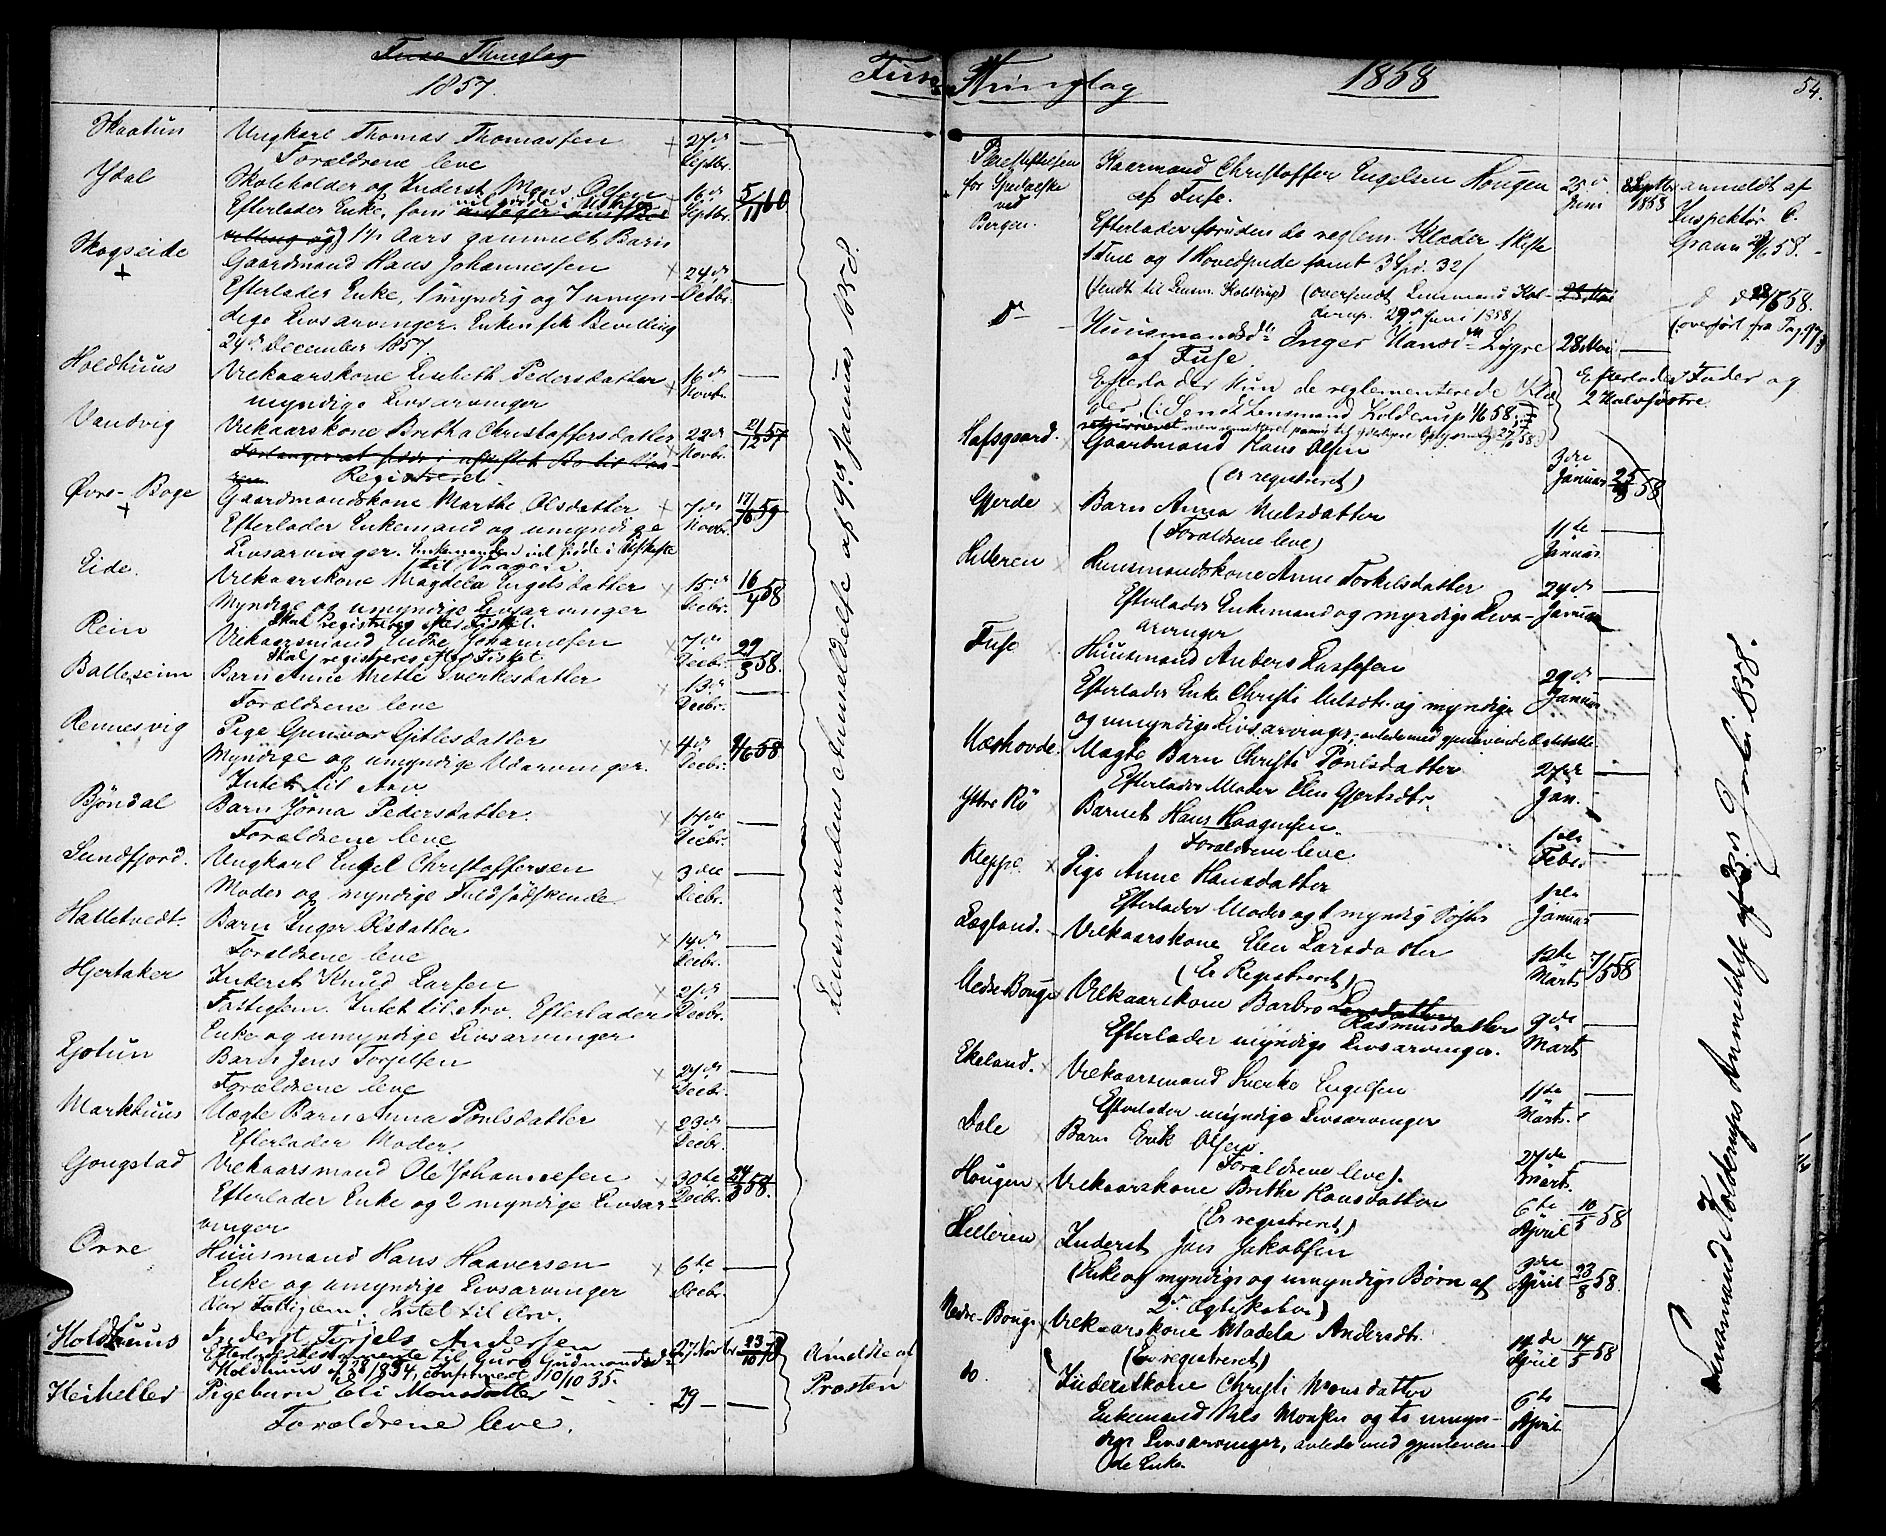 Fuse Thinglag
1857.
Skaatun Ungkarl Thomas Thomassen 27de Septbr.
Forældrene leve
Ydal Skoleholder og Inderst Mons Olsen 16de Septbr. 5/11 60
Efterlader Enke, som vil sidde i Uskifte
1½ Aars gammelt Barn
Skogseide Gaardmand Hans Johannessen 24de Octbr.
Efterlader Enke, 1 myndig og 7 umyn-
dige Livsarvinger. Enken fik Bevilling
24de December 1857
Holdhuus Vilkaarskone Lisbeth Pedersdatter 16de Novbr.
myndige Livsarvinger
Vandvig Vilkaarskone Britha Christoffersdatter 22de Novbr. 21/12 57
Registreret.
Øvre-Boge Gaardmandskone Marthe Olsdatter 7de Novbr. 17/10 59
Efterlader Enkemand og umyndige
Livsarvinger. Enkemanden vil sidde i Uskifte
Eide. Vilkaarskone Magdela Engelsdatter 15de Decbr. 16/4 58
Myndige og umyndige Livsarvinger
Skal registreres efter Fisket.
Rein Vilkaarsmand Johannessen 7de Decbr. 29/3 58.
Skal registreres efter Fisket
Balleseim Barn Anne Mette Sverkesdatter 13de Decbr.
Forældrene leve
Rennesvig Pige Gunvor Gitlesdatter 4de Decbr. 9/6 58
Myndige og umyndige Udarvinger.
Intet til Arv
Bjöndal Barn Jörna Pedersdatter. 17de Decbr.
Forældrene leve
Sundfjord. Ungkarl Engel Christoffersen 3die Decbr.
Moder og myndige Fuldsødskende
Halletvedt. Barn Inger Olsdatter 14de Decbr.
Forældrene leve
Hjertaker Inderst Knud Larsen 21de Decbr.
Fattiglem. Intet til Arv. Efterlader
Enke og umyndige Livsarvinger
Ljotun Barn Jens Torjelsen 24de Decbr.
Forældrene leve
Markhuus Uægte Barn Anna Poulsdatter 23de Decbr.
Efterlader Moder.
Gongstad Vilkaarsmand Ole Johannesen 30te Decbr. 24/3 58.
Efterlader Enke og 2 myndige Livsar-
vinger
Orre Huusmand Hans Haaversen 6te Decbr.
Enke og umyndige Livsarvinger
Var Fattiglem. Intet til Arv.
Holdhuus Inderst Torjels Andersen 27 Novbr. 23/10 Anmeldte af
Holdhuus 28/8 1834, confirmert 10/10 35.
Heiheller Pigebarn Eli Monsdatter 29 Præsten
Forældrene leve.
Lensmandens Anmeldelse af 19de Januar 1858.
Fuse Thinglag 1858 54.
Pleiestiftelsen Kaarmand Christoffer Engelsen Hougen 25de Juni 8 Septbr 1858 anmeldt af
for Spedalske af Fuse. Inspektör C.
ved Bergen. Efterlader foruden de reglem. Klæder 1 Kiste Grann 28/6 58.
1 Frue og 1 Hovedpude samt 3 Spd. 32/
Sendt til Lensm. Koldrup) (oversendt Lensmand Kol-
derup. 29de Juni 1858)
Do Huusmandsd. Inger Hansd. Lygre 28 Mai
af Fuse (overført fra Pag. 97
Efterlader hun de reglementerede Klæ- Efterlader Fader og
der. (Sendt Lensmand Kolderup 1/6 58. 2 Halvsøstre.
Hafsgaard. Gaardmand Hans Olsen 3die Januar 25/ 58
(er registreret)
Gjerde Barn Anna Nilsdatter 11te Januar.
(Forældrene leve)
Hilleren Huusmandskone Anne Torkelsdatter 24de Januar
Efterlader Enkemand og myndige Livs-
arvinger
Fuse Huusmand Anders Lassesen 29de Januar
Efterlader Enke Christi Nilsdtr. og myndige
og umyndige Livsarvinger, avlede med gjenlevende Ægtefælle
Næshovde. Uægte Barn Christi Poulsdatter 27de Jan.
Efterlader Moder Elen Gjertsdtr.
Yttre Rö Barnet Hans Haagensen. 1ste Febr.
Forældrene leve
Kleppe Pige Anne Hansdatter 1ste Januar
Efterlader Moder og 1 myndig Søster
Lægland. Vilkaarskone Elen Larsdatter 12te Marts 7/5 58
(Er Registreret)
Nedre Bouge Vilkaarskone Barbro Larsdatter Rasmusdatter 9de Marts
Efterlader myndige Livsarvinger.
Ekeland. Vilkaarsmand Sverke Engelsen 11te Marts.
Efterlader myndige Livsarvinger
Dale Barn Erik Olsen. 27de Marts.
Forældrene leve).
Hougen Vilkaarskone Brithe Hansdatter 6te April 10/5 58
(Er registreret)
Helleren Inderst Jon Jakobsen 9de April 23/8 58.
(Enke og myndige og umyndige Børn af
2de Ægteskaber)
Nedre-Bouge Vilkaarskone Madela Andersdtr. 14de April 14/5 58
(Er registreret)
do. Inderstkone Christi Monsdatter 6te April
Enkemand Nils Monsen og to umyn-
dige Livsarvinger, avlede med gjenleven-
de Enke.
Lensmand Kolderups Anmeldelse af Juli 1858.